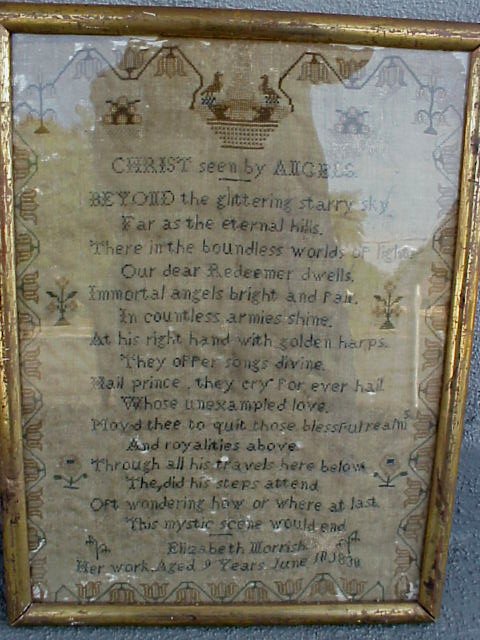 CHRIST seen by ANGELS.
BEYOND the glittering starry sky
Far as the eternal hills.
There in the boundless worlds of light
Our dear Redeemer dwells.
Immortal angels bright and fair.
In countless armies shine.
At his right hand with golden harps.
They offer songs divine.
Hail prince, they cry for ever hail
Whose unexampled love.
Mov,d thee to quit those blessful realms
And royalities above
Through all his travels here below
The,did his steps attend
Oft wondering how or where at last
This mystic scene would end
Elizabeth Morrish
Her work Aged 9 Years June